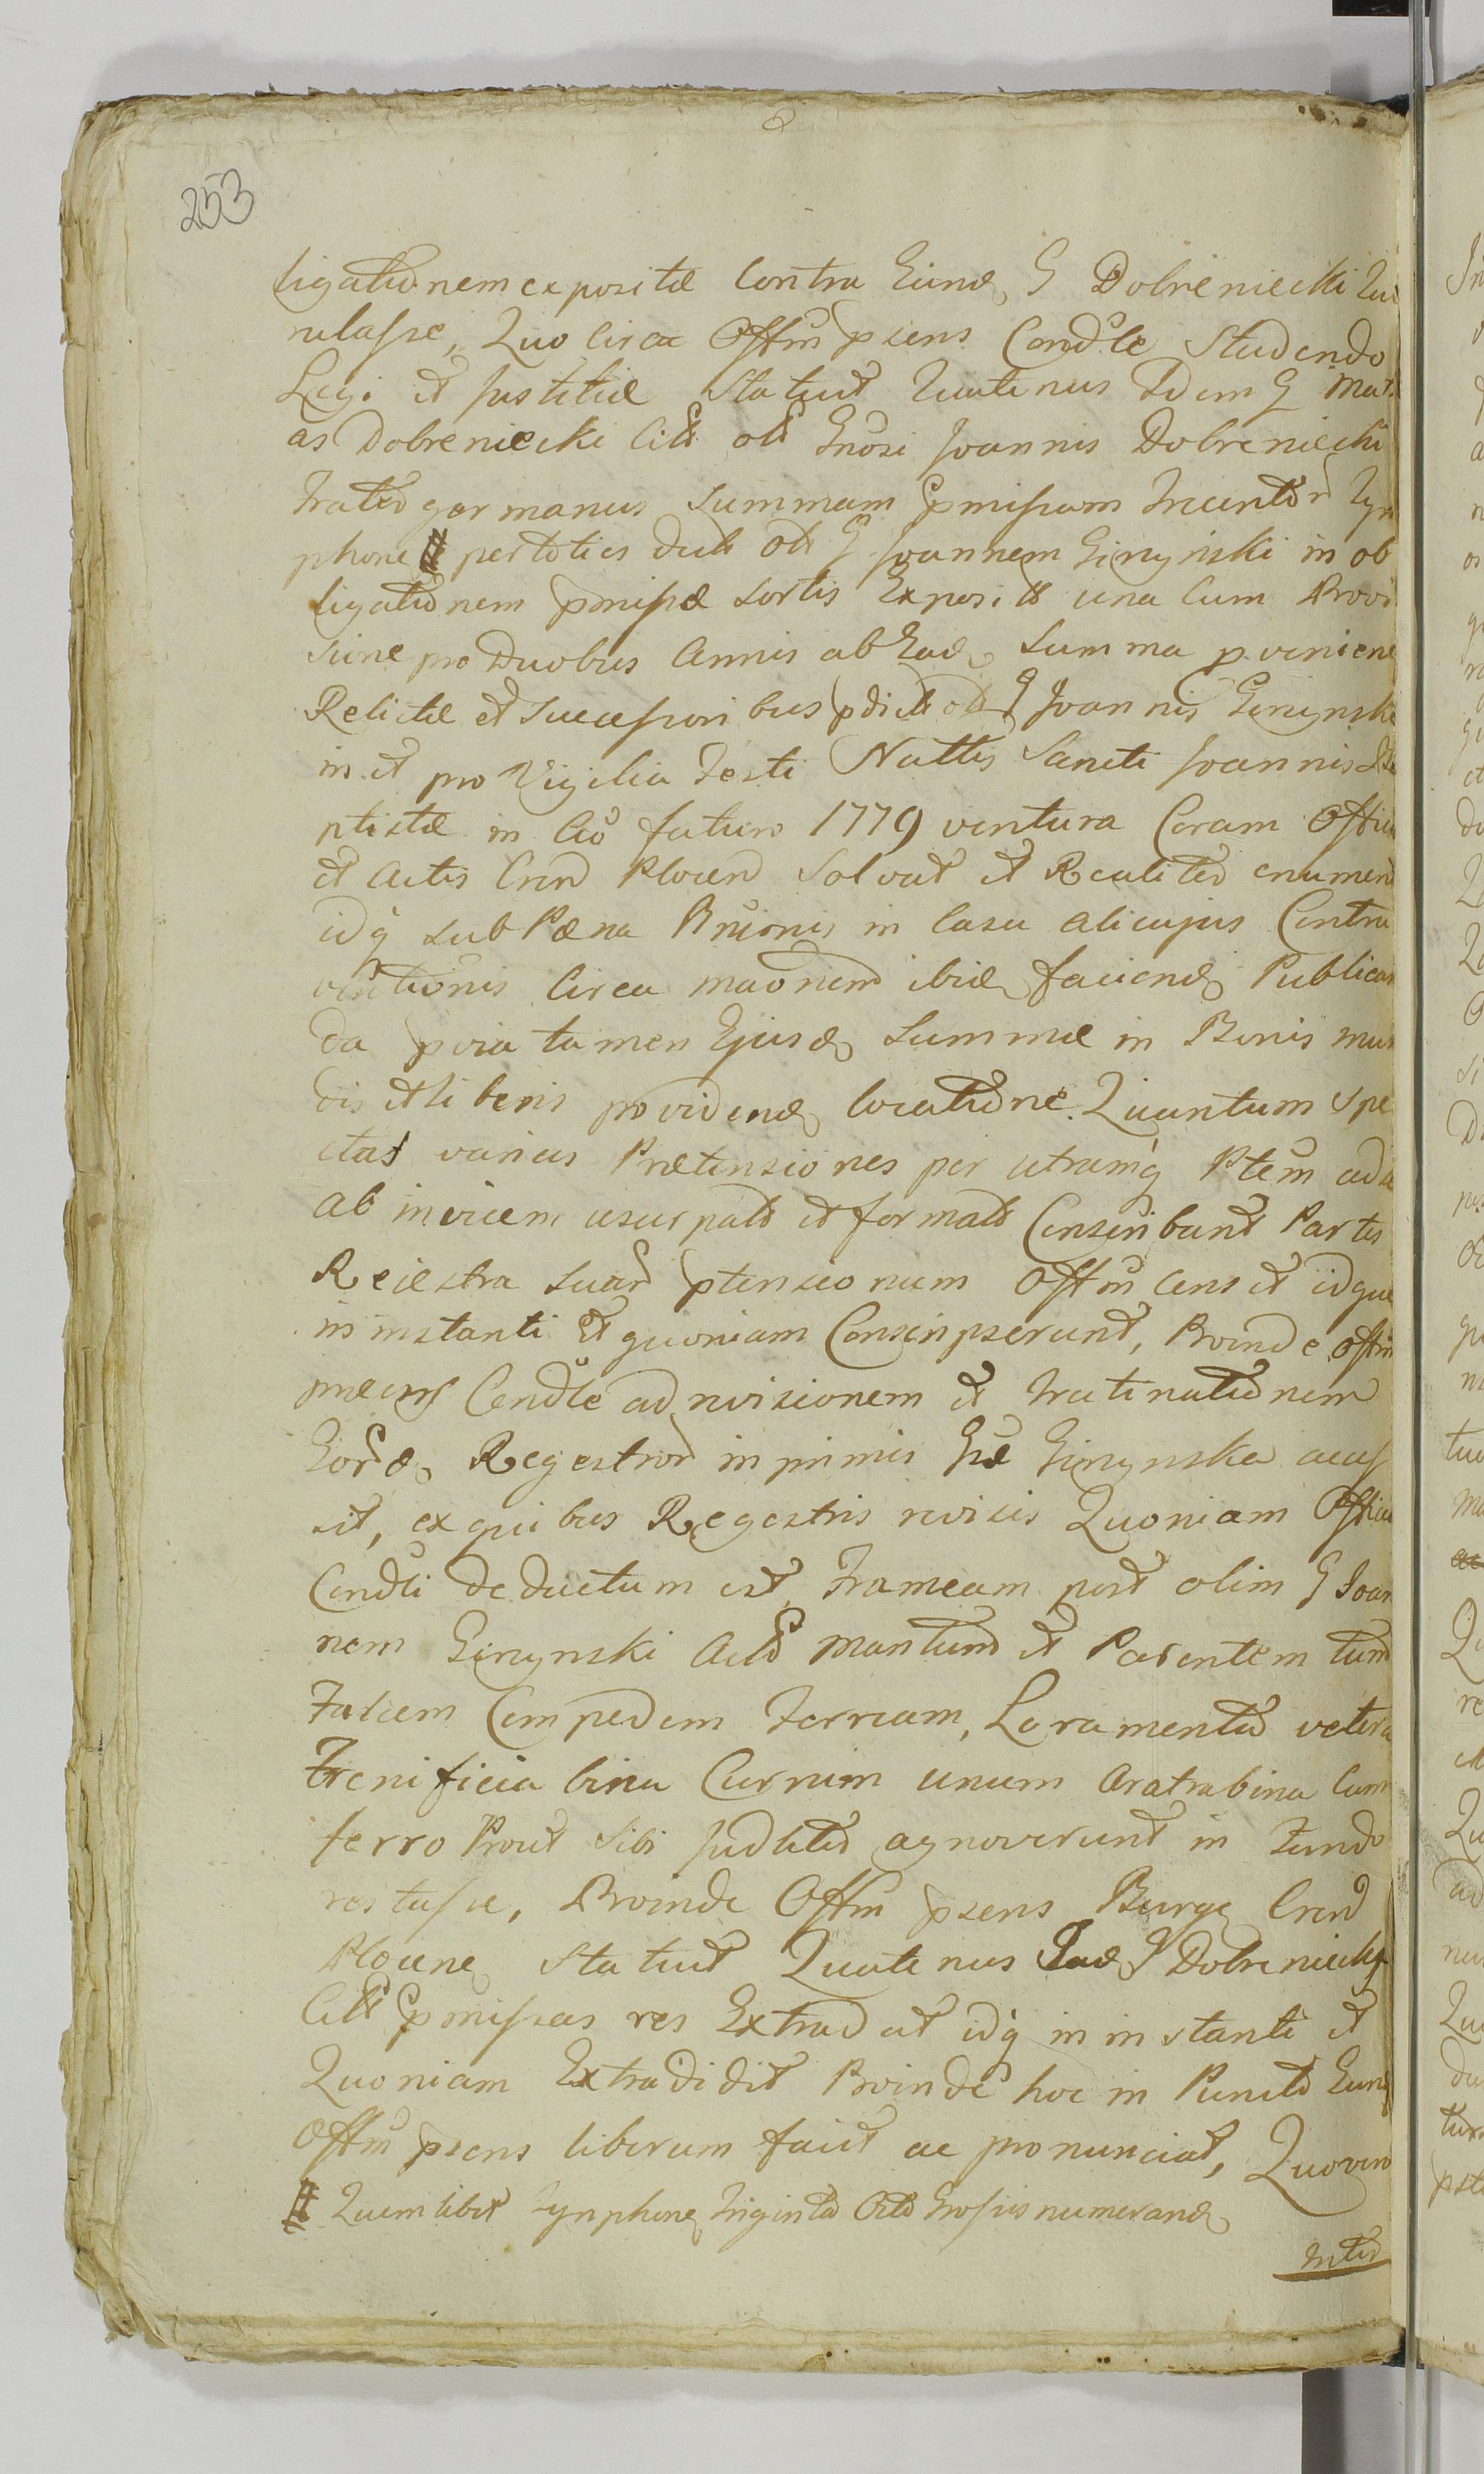 253
ligationem expositæ Contra Eund G Dobreniecki
rulasse, Quo Circa Offm pzens Condle Studendo
Legi et Justitiæ Statuit Quatenus Idem G Mat
as Dobreniecki Citt olt Gnosi Joannis Dobreniecki
frater germanus Summam pmissam Trecentor Tyn
phone # per toties dict olt G Joannem Gizynski in ob
ligationem pmissæ Sortis Exposit una Cum Provi
sione pro Duobus Annis ab Ead Summa pvenien
Relictæ et Successoribus pdict olt G Joannis Gizynski
in et pro Vigilia Festi Nattis Sancti Joannis Ba
ptistæ in Ao futuro 1779 ventura Coram Offici
et Actis Cren Plocen Solvat et Realiter enumer
idq sub Pæna Bnionis in Casu alicujus Contra
ventionis Circa maonem ibid faciend Publican
da pvia tamen Ejusd Summæ in Bonis mun
dis et liberis providend locatione. Quantum Spe
ctat varias Prætensiones per utramq Ptem ad
ab invicem usurpat et format Conscribant Partes
Reiestra Suar ptensionum Offm Censet idque
in instanti Et quoniam Conscripserunt, Proinde Offm
præens Condle ad revisionem et trutinationem
Eord Regestror in primis Gæ Gizynska acces
sit, ex quibus Regestris revisis Quoniam Officio
Condli deductum est, Frameam post olim G Joan
nem Gizynski Act Maritum et Parentem tum
Falcem Compedem Ferream, Loramenta vetera
Frenificia bina Currum unum Aratra bina Cum
ferro Prout Sibi Judliter agnoverunt in Fundo
restasse, Proinde Offm pzens Burge Cren
Plocene Statuit Quatenus Ead G Dobreniecki
Citt pmissas res Extradat idq in instanti et
Quoniam Extradidit Proinde hoc in Puncto Eund
Offm pzens liberum facit ac pronunciat, Quovero
# Quemlibet Tynphone Triginta Octo Grossis numerand
Inter